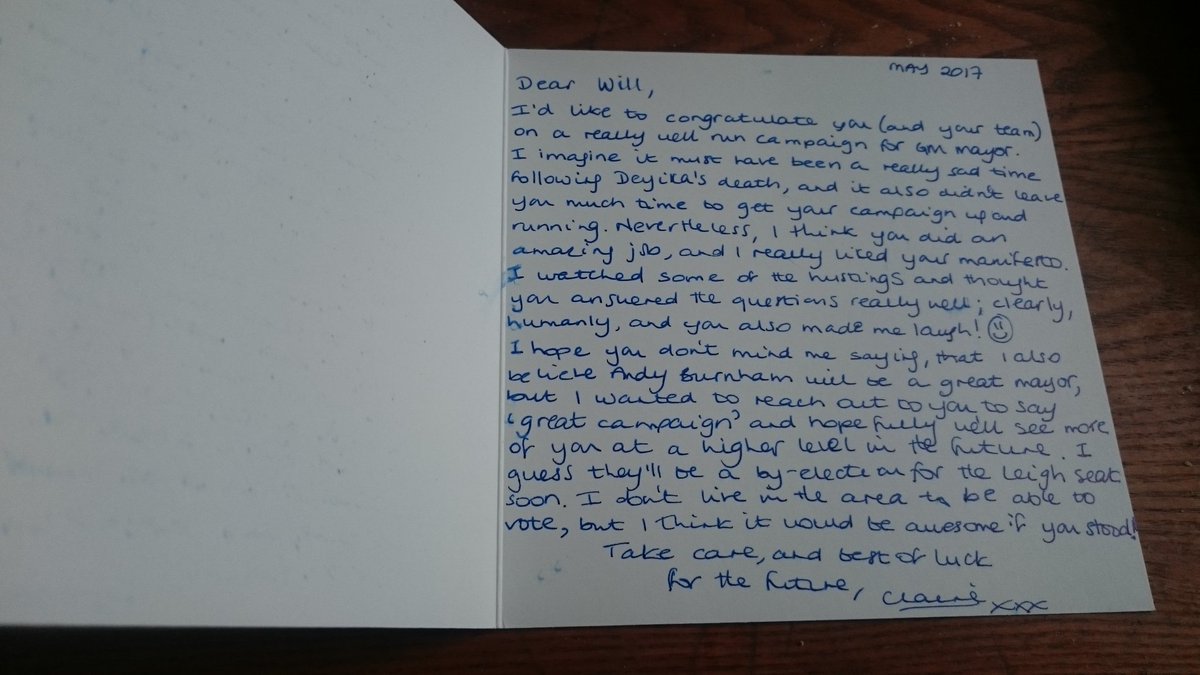 MAY 2017
Dear Will,
I'd like to congratulate you (and your team)
on a really well run campaign for GM mayor.
I imagine it must have been a really sad time
following Deyika's death, and it also didn't leave
you much time to get your campaign up and
running. Nevertheless, I think you did an
amazing job, and I really liked your manifesto.
I watched some of the hustings and thought
you answered the questions really well; clearly,
humanly, and you also made me laugh! ☺
I hope you don't mind me saying, that I also
believe Andy Burnham will be a great mayor,
but I wanted to reach out to you to say
'great campaign' and hopefully we'll see more
of you at a higher level in the future. I
guess they'll be a by-election for the Leigh seat
soon. I don't live in the area to be able to
vote, but I think it would be awesome if you stood!
Take care, and best of luck
for the future, Claire xxx